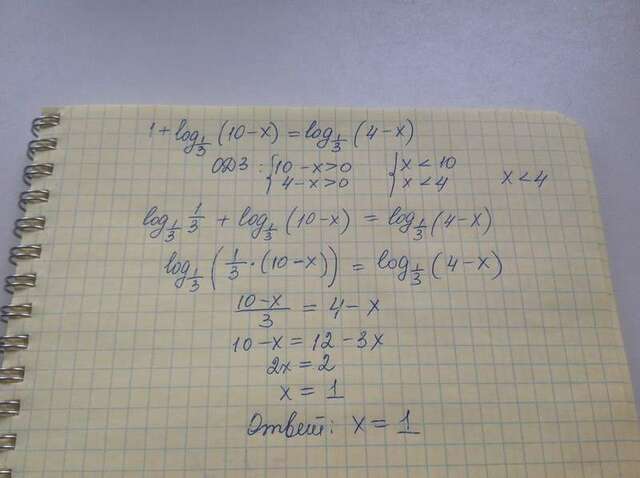 1 + log_{1/3} (10 - x) = log_{1/3} (4 - x)
ОДЗ : { 10 - x > 0 { x < 10
{ 4 - x > 0 { x < 4 x < 4
log_{1/3} 1/3 + log_{1/3} (10 - x) = log_{1/3} (4 - x)
log_{1/3} (1/3 · (10 - x)) = log_{1/3} (4 - x)
(10 - x)/3 = 4 - x
10 - x = 12 - 3x
2x = 2
x = 1
Ответ: x = 1